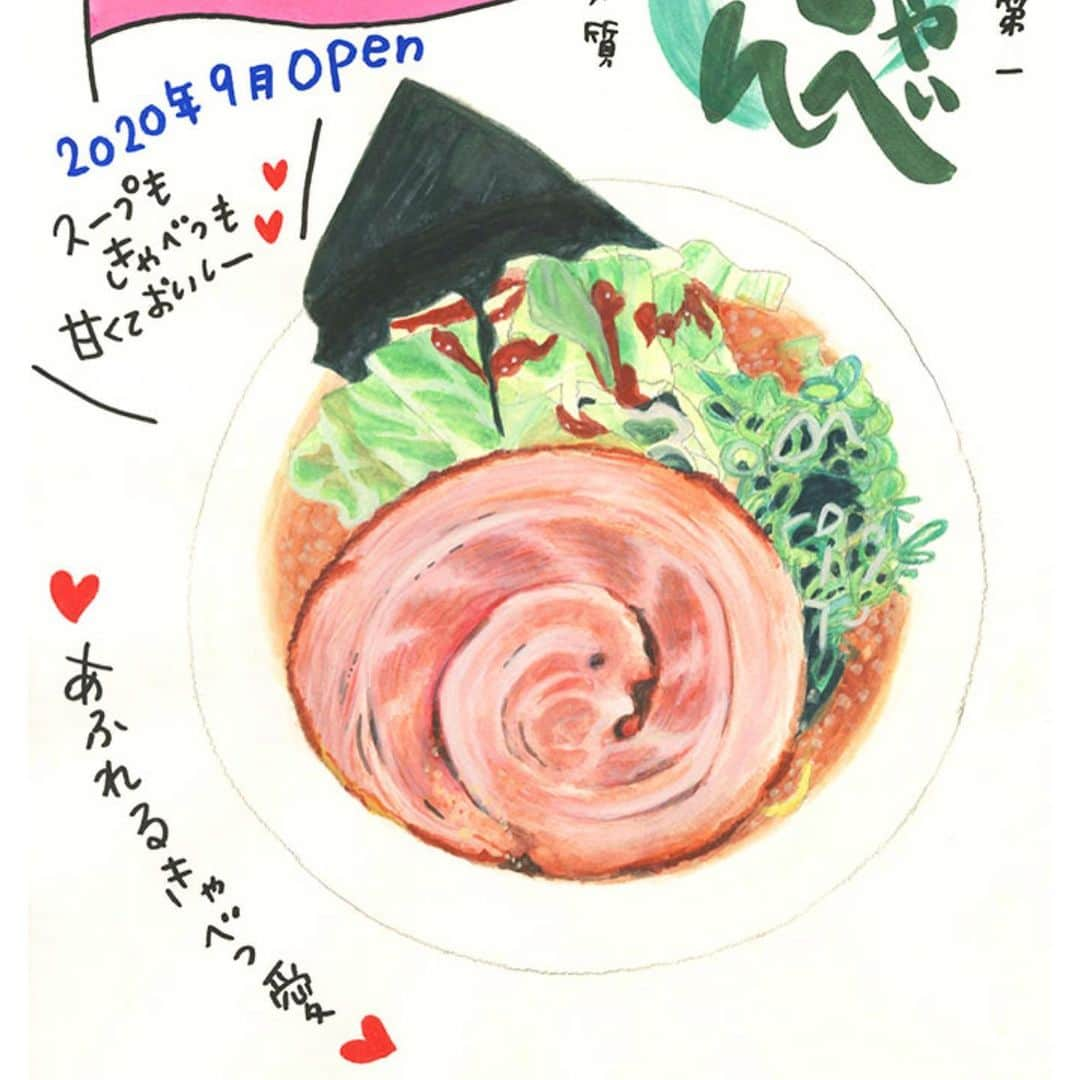 2020年9月open
スープも
きゃべつも
甘くておいしー
質
第一
あふれるきゃべつ愛